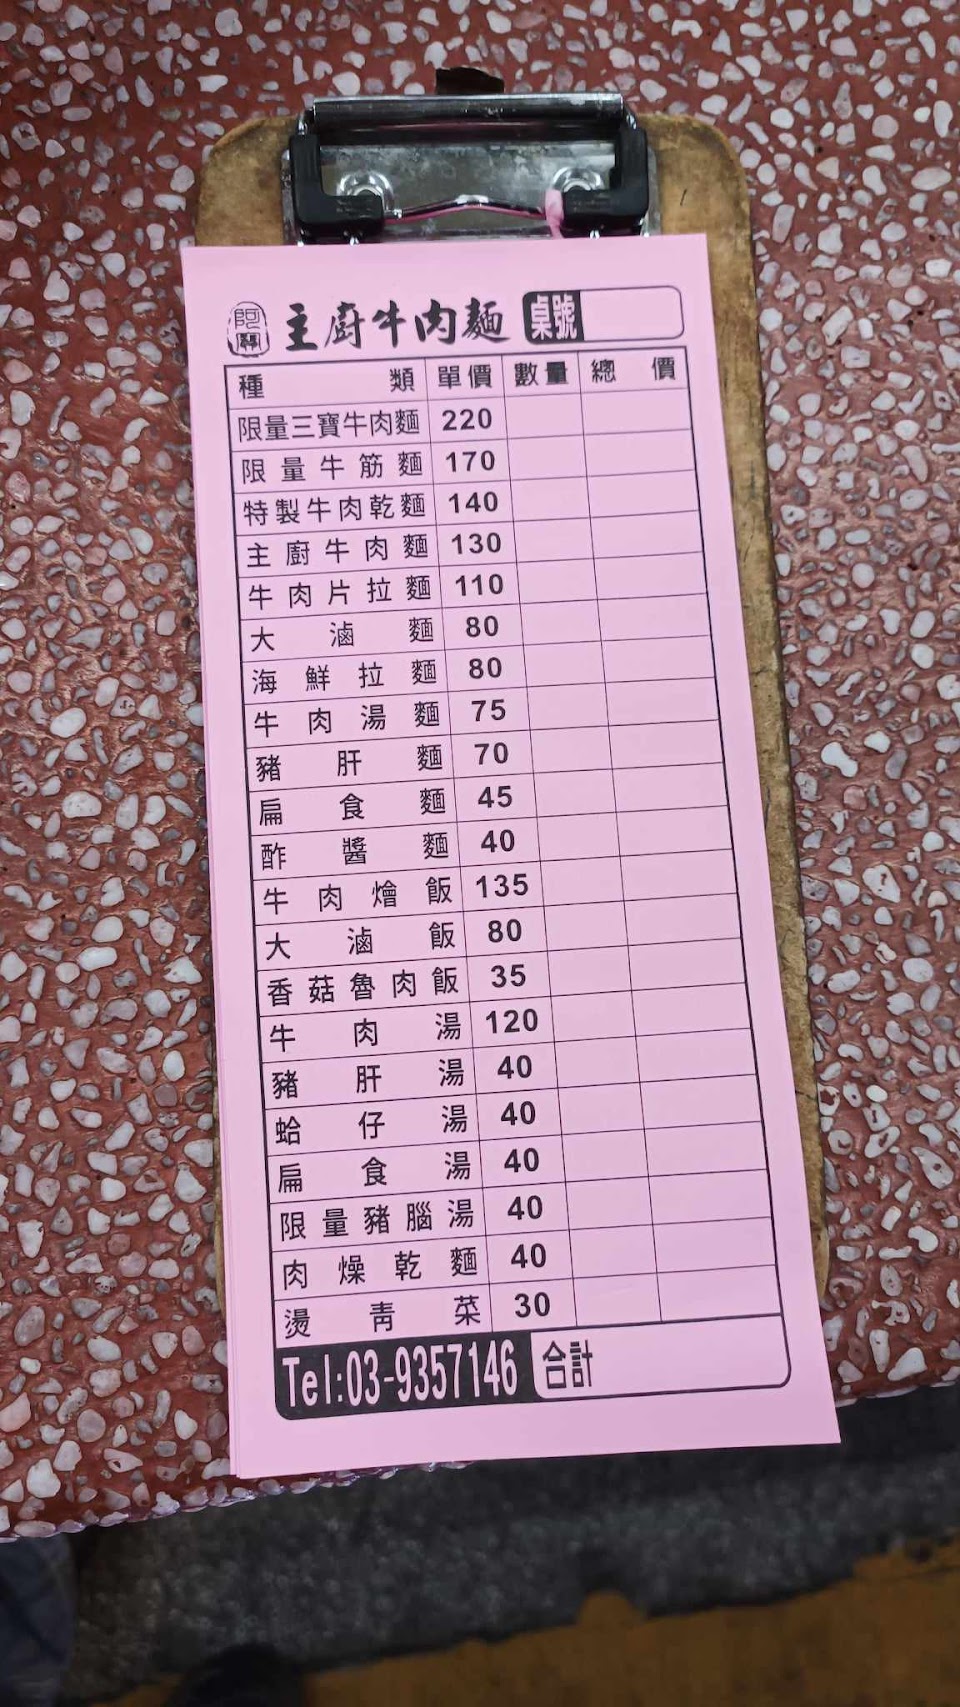 主廚牛肉麵 桌號
種類 單價 數量 總價
限量三寶牛肉麵 220
限量牛筋麵 170
特製牛肉乾麵 140
主廚牛肉麵 130
牛肉片拉麵 110
大滷麵 80
海鮮拉麵 80
牛肉湯麵 75
豬肝麵 70
扁食麵 45
酢醬麵 40
牛肉燴飯 135
大滷飯 80
香菇魯肉飯 35
牛肉湯 120
豬肝湯 40
蛤仔湯 40
扁食湯 40
限量豬腦湯 40
肉燥乾麵 40
燙青菜 30
Tel:03-9357146 合計